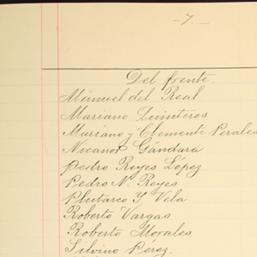 -7.-
Del frente
Manuel del Real
Mariano Quinteros
Mariano y Clemente Perales
Nicanor Gándara
Pedro Reyes López
Pedro N. Reyes
Plutarco Y Vela
Roberto Vargas
Roberto Morales
Silvino Pérez.